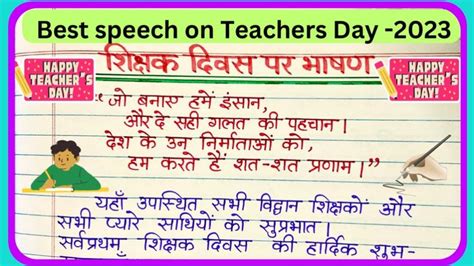 Best speech on Teachers Day -2023
HAPPY
TEACHER'S
DAY!
शिक्षक दिवस पर भाषण
HAPPY
TEACHER'S
DAY!
“जो बनाए हमें इंसान,
और दे सही गलत की पहचान।
देश के उन निर्माताओं को,
हम करते हैं शत-शत प्रणाम।”
यहाँ उपस्थित सभी विद्वान शिक्षकों और
सभी प्यारे साथियों को सुप्रभात।
सर्वप्रथम् शिक्षक दिवस की हार्दिक शुभ-